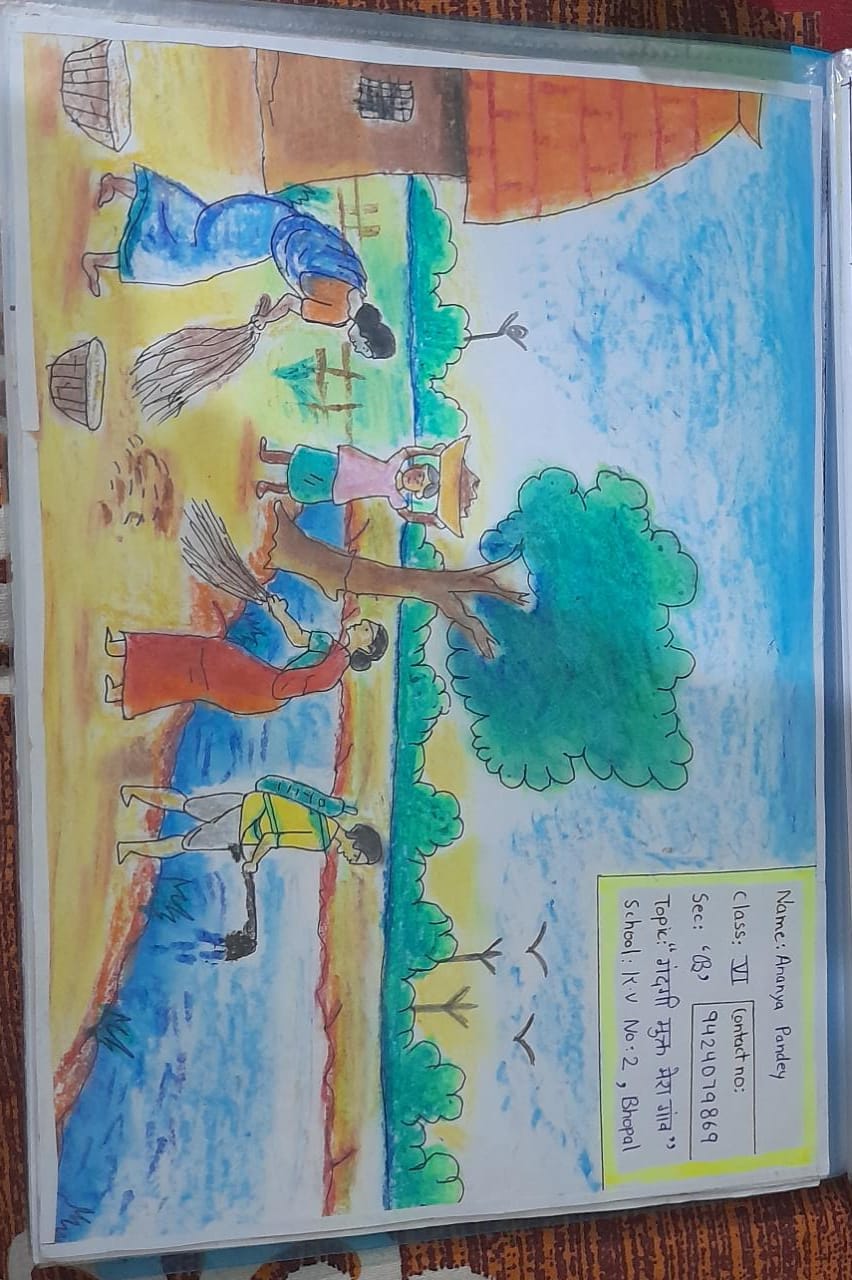 Name: Ananya Pandey
Class: VI
Contact no:
Sec: "B"
9424079869
Topic: "गंदगी मुक्त मेरा गांव"
School: K.V No:2, Bhopal